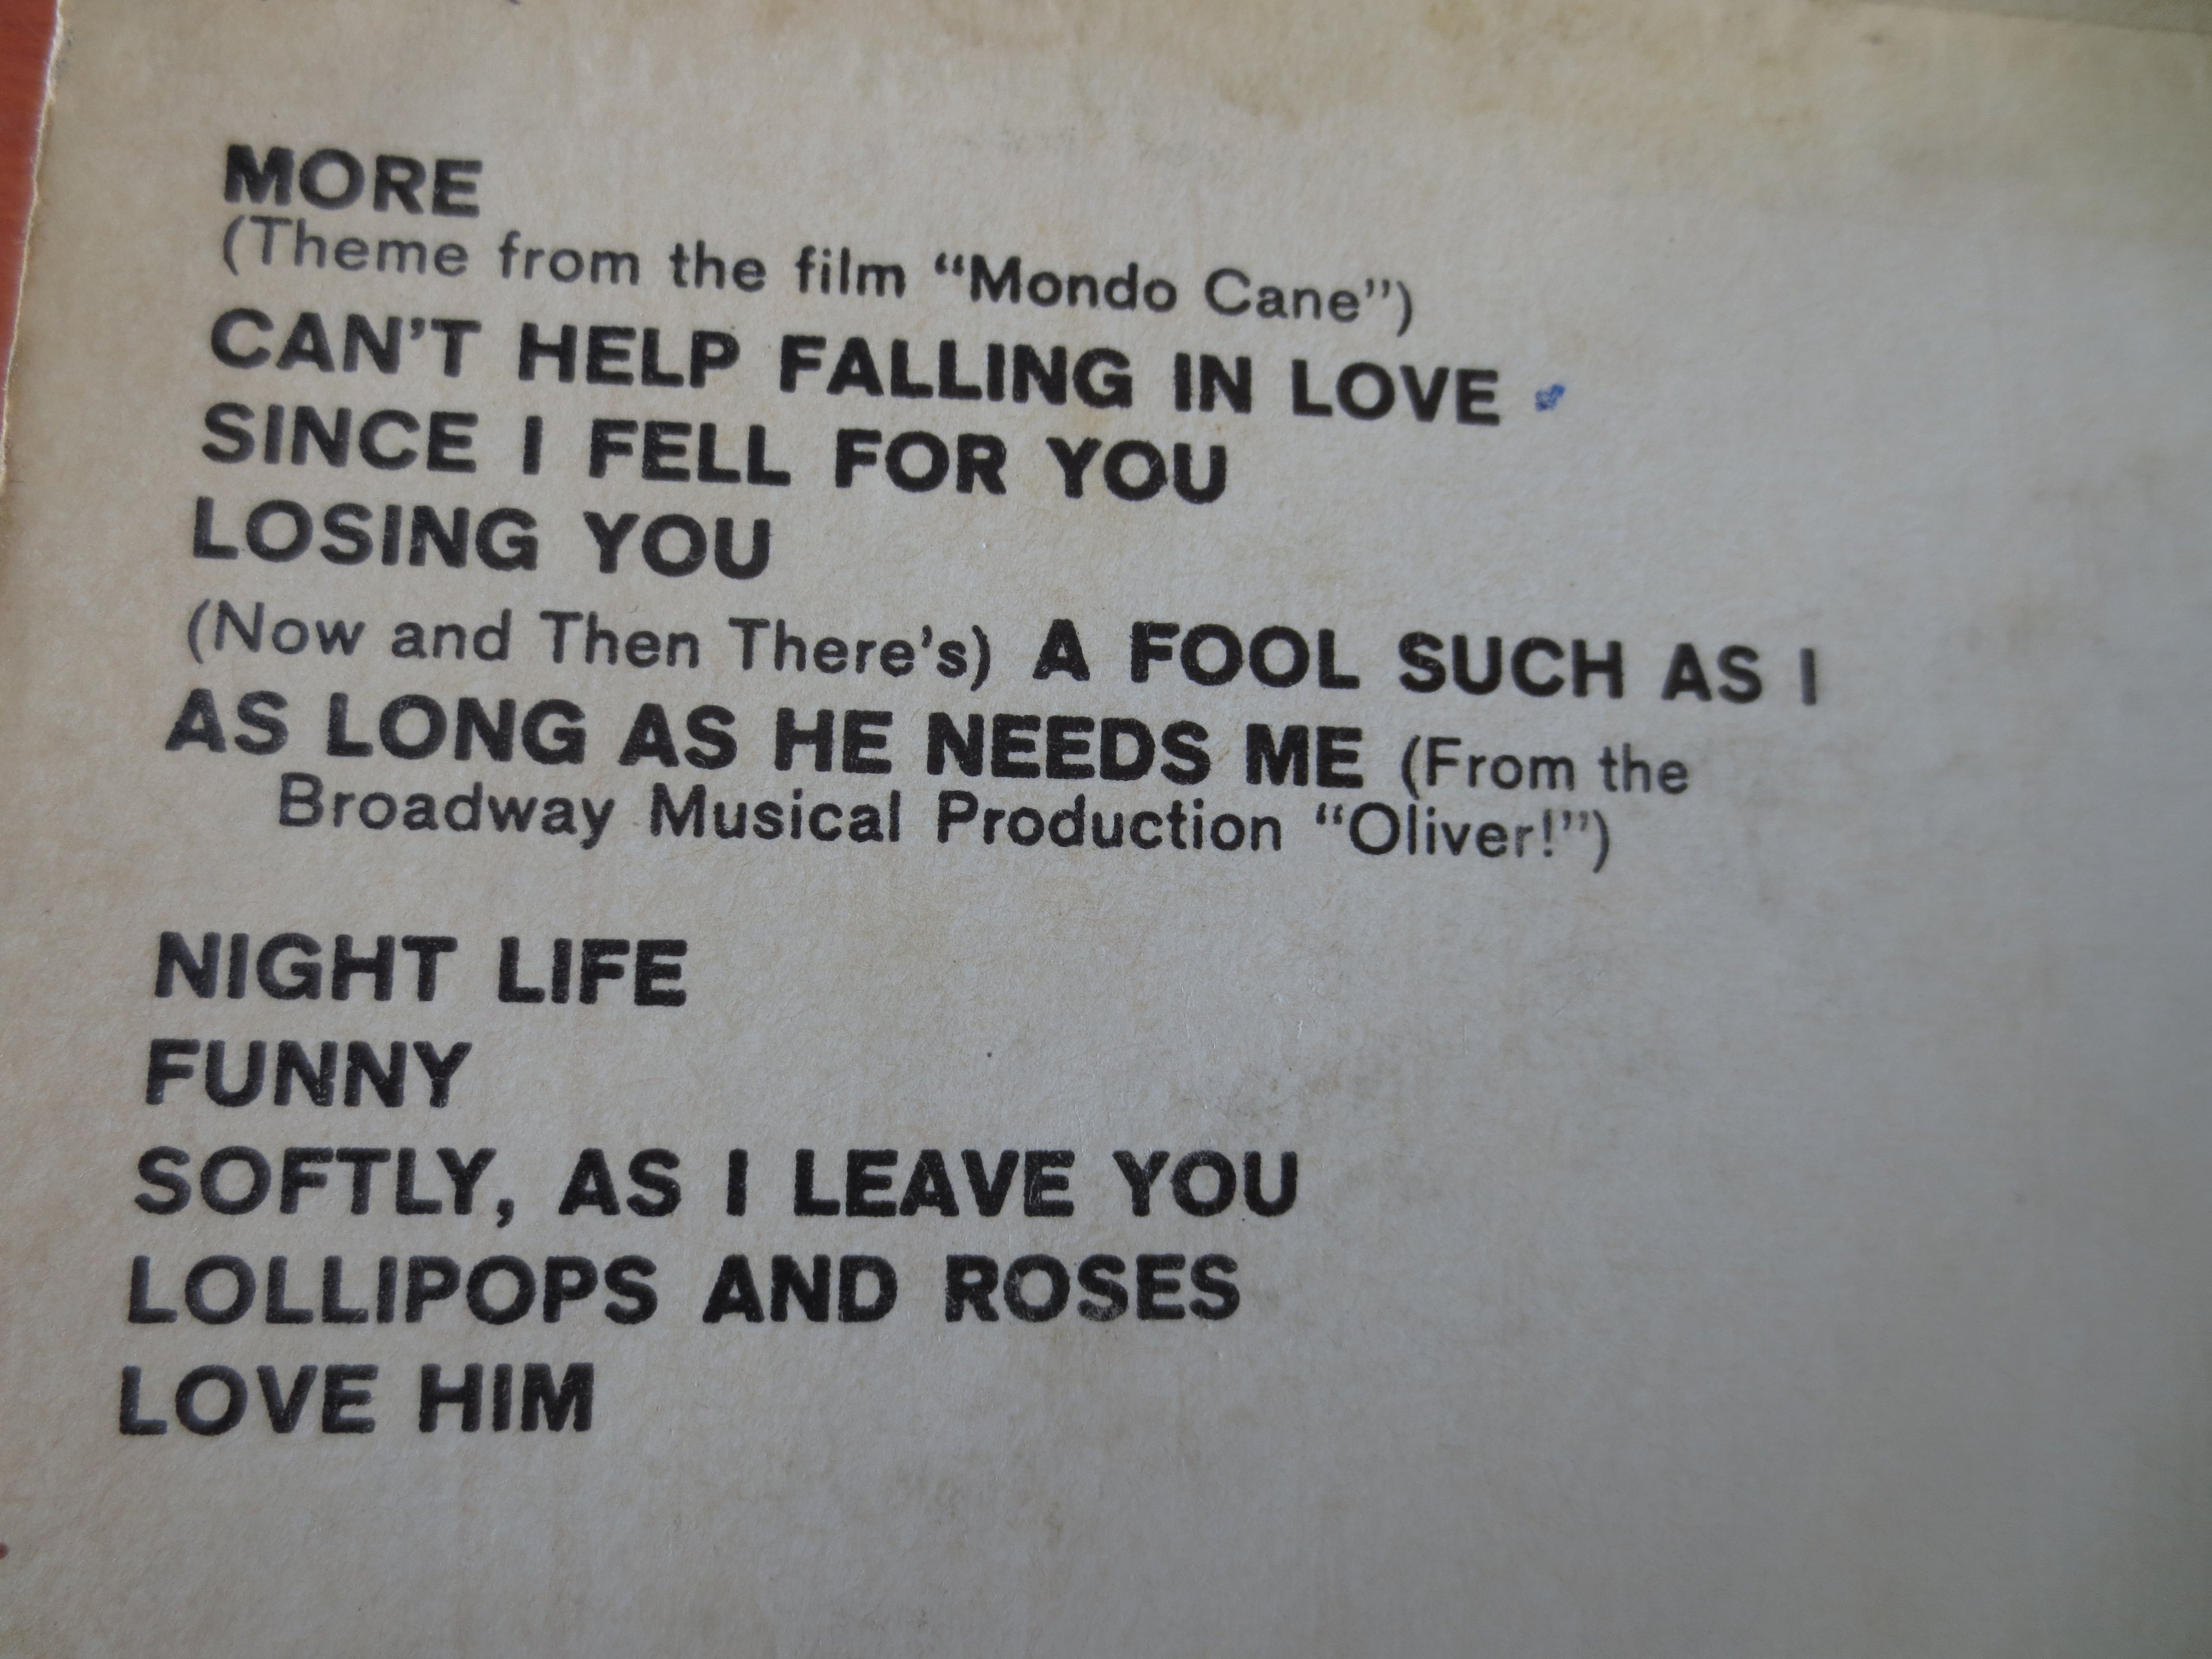 MORE
(Theme from the film “Mondo Cane”)
CAN'T HELP FALLING IN LOVE
SINCE I FELL FOR YOU
LOSING YOU
(Now and Then There's) A FOOL SUCH AS I
AS LONG AS HE NEEDS ME (From the
Broadway Musical Production “Oliver!”)
NIGHT LIFE
FUNNY
SOFTLY, AS I LEAVE YOU
LOLLIPOPS AND ROSES
LOVE HIM